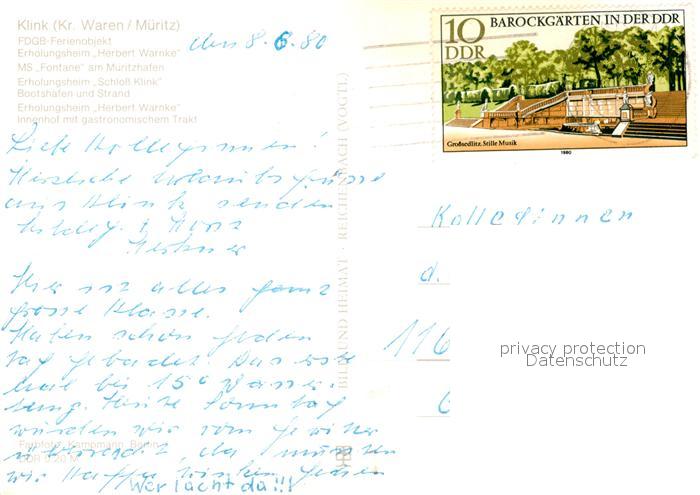 Klink (Kr. Waren / Müritz)
FDGB-Ferienobjekt
Erholungsheim „Herbert Warnke"
MS „Fontane" am Müritzhafen
Erholungsheim „Schloß Klink"
Bootshafen und Strand
Erholungsheim „Herbert Warnke"
Innenhof mit gastronomischem Trakt
den 8.6.80
Liebe Kolleginnen!
Herzliche Urlaubsgrüsse
aus Klink senden
Hier ist alles ganz
grosse Klasse.
Haben schon jeden
Tag gebadet. Das erste
mal bei 15° Wasser.
temp. Heute Sonntag
wurden wir vom Gewitter
überrascht, da mussten
wir
Wer lacht da!!!
Farbfoto: Kampmann, Berlin
DDR 0,20 M
BILD UND HEIMAT · REICHENBACH (VOGTL)
10
DDR
BAROCKGÄRTEN IN DER DDR
Großsedlitz, Stille Musik
1980
Kolleginnen
d.
116
privacy protection
Datenschutz